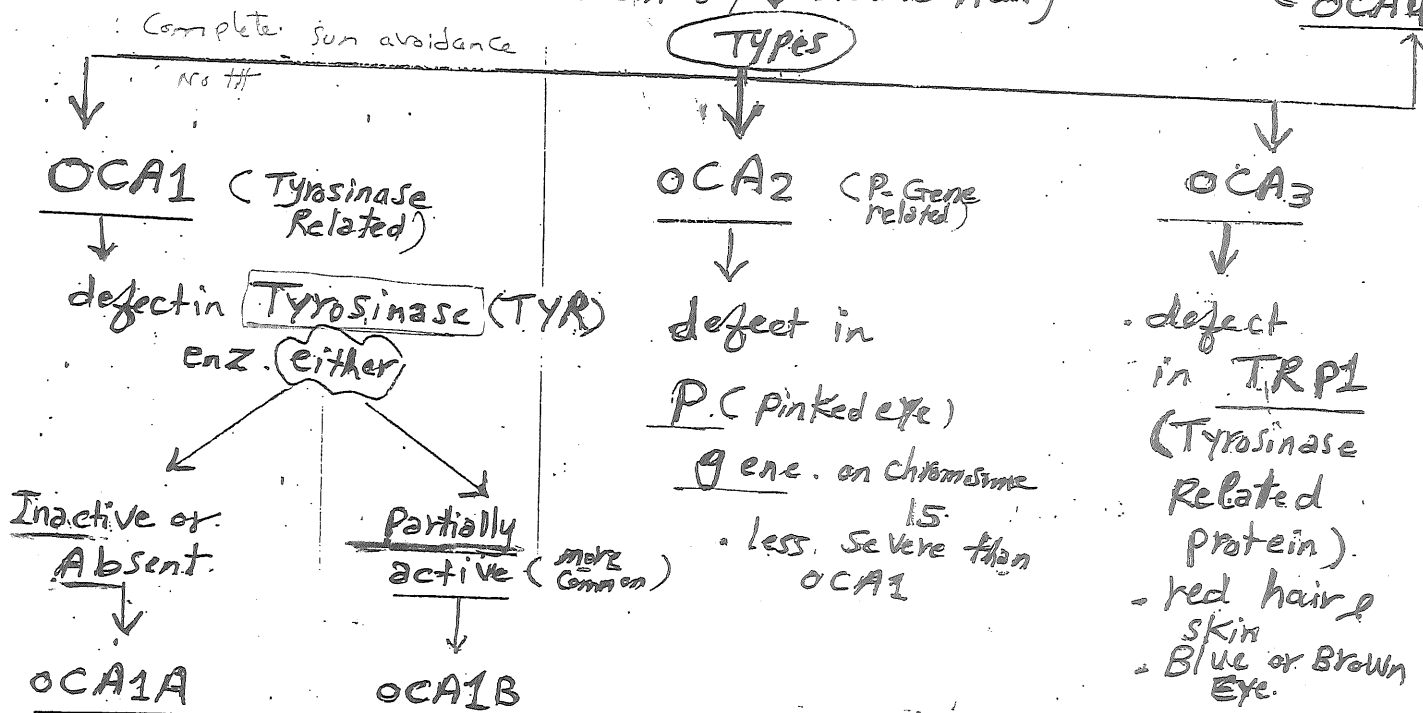 OCA4
Complete sun avoidance
Types
OCA1 (Tyrosinase
Related)
defect in Tyrosinase (TYR)
enz. either
Inactive or
Absent.
OCA1A
Partially
active (more
common)
OCA1B
OCA2 (P-Gene
related)
defect in
P. (pinked eye)
gene. on chromosome
15.
. less severe than
OCA1
OCA3
. defect
in TRP1
(Tyrosinase
Related
protein).
- red hair &
skin
- Blue or Brown
Eye.